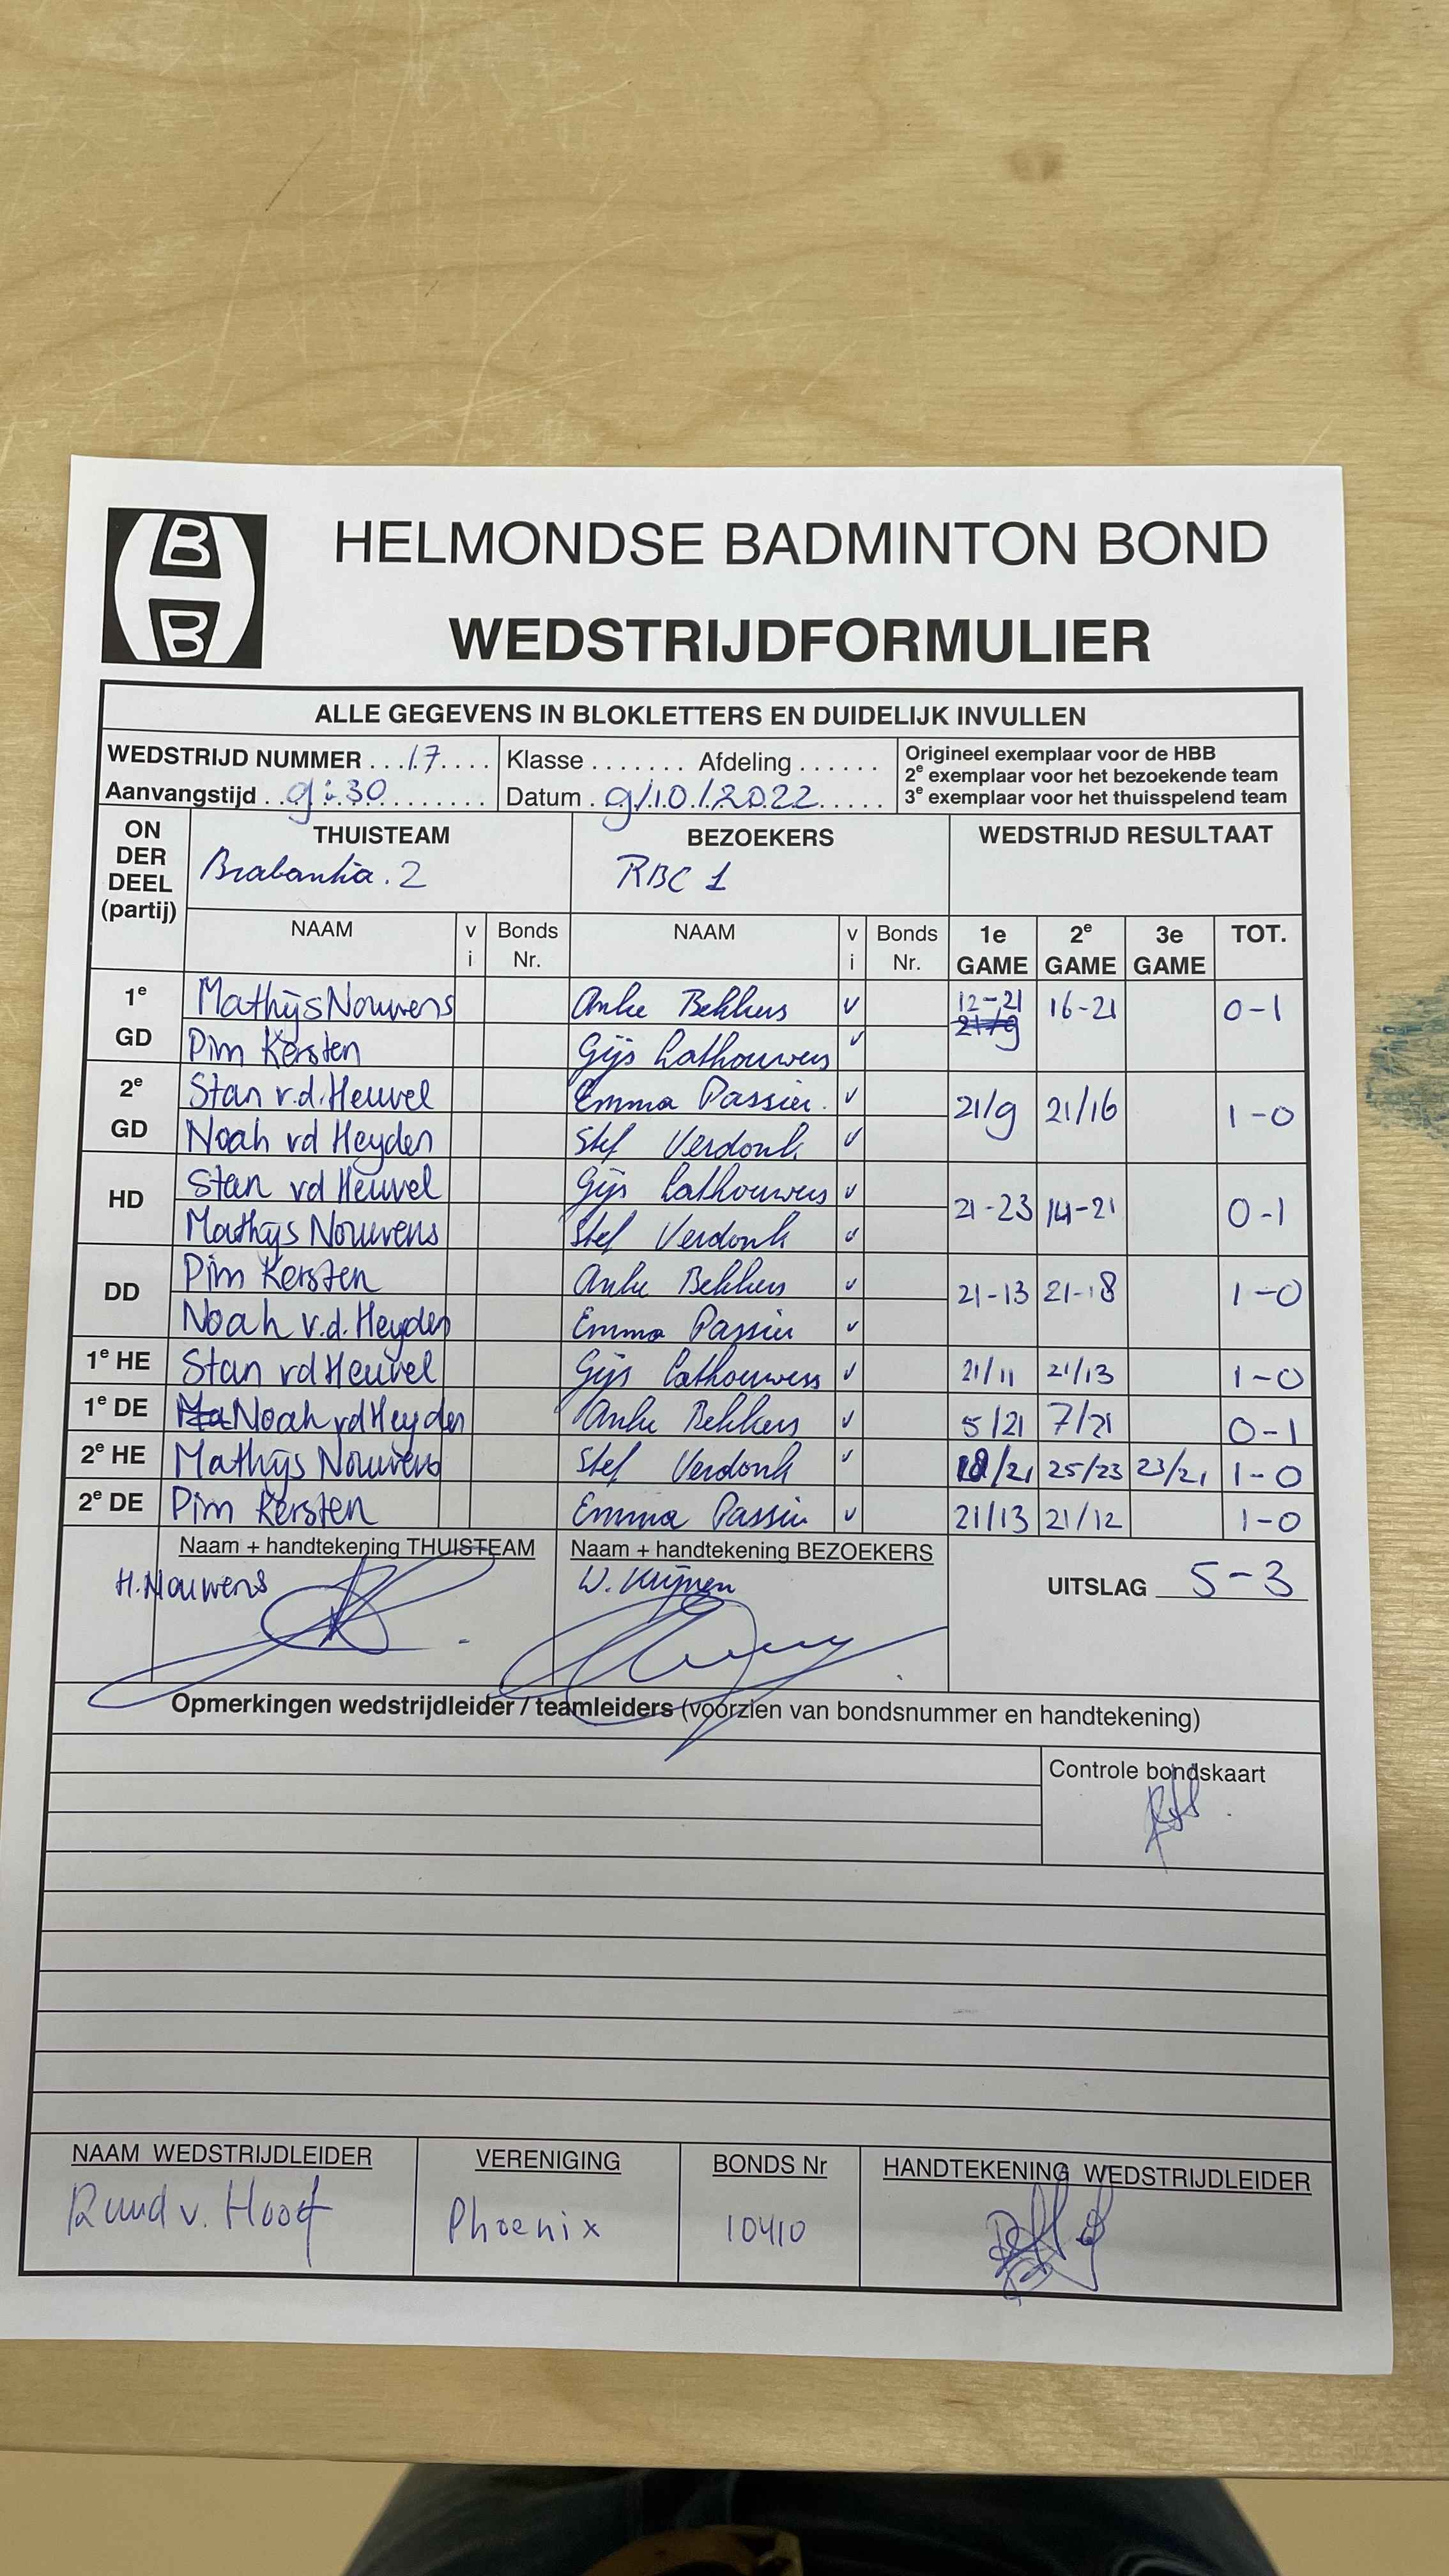 B
B
HELMONDSE BADMINTON BOND
WEDSTRIJDFORMULIER
ALLE GEGEVENS IN BLOKLETTERS EN DUIDELIJK INVULLEN
WEDSTRIJD NUMMER ...17.... Klasse ....... Afdeling ...... Origineel exemplaar voor de HBB
2e exemplaar voor het bezoekende team
Aanvangstijd ..9:30........ Datum . 9/10/2022..... 3e exemplaar voor het thuisspelend team
ON DER DEEL (partij) THUISTEAM BEZOEKERS WEDSTRIJD RESULTAAT
Brabantia.2 RBC 1
NAAM v i Bonds Nr. NAAM v i Bonds Nr. 1e GAME 2e GAME 3e GAME TOT.
1e GD Mathijs Nouwens Anke Bekkers v 12-21 16-21 0-1
Pim Kersten Gijs Lathouwers v 21/9
2e GD Stan v.d. Heuvel Emma Passier. v 21/9 21/16 1-0
Noah vd Heyden Stef Verdonk v
HD Stan vd Heuvel Gijs Lathouwers v 21-23 14-21 0-1
Mathijs Nouwens Stef Verdonk v
DD Pim Kersten Anke Bekkers v 21-13 21-18 1-0
Noah v.d. Heyden Emma Passier v
1e HE Stan vd Heuvel Gijs Lathouwers v 21/11 21/13 1-0
1e DE Noah vd Heyden Anke Bekkers v 5/21 7/21 0-1
2e HE Mathijs Nouwens Stef Verdonk v /21 25/23 23/21 1-0
2e DE Pim Kersten Emma Passier v 21/13 21/12 1-0
Naam + handtekening THUISTEAM Naam + handtekening BEZOEKERS
H. Nouwens W. UITSLAG 5-3
Opmerkingen wedstrijdleider / teamleiders (voorzien van bondsnummer en handtekening)
Controle bondskaart
NAAM WEDSTRIJDLEIDER VERENIGING BONDS Nr HANDTEKENING WEDSTRIJDLEIDER
Ruud v. Hoof Phoenix 10410